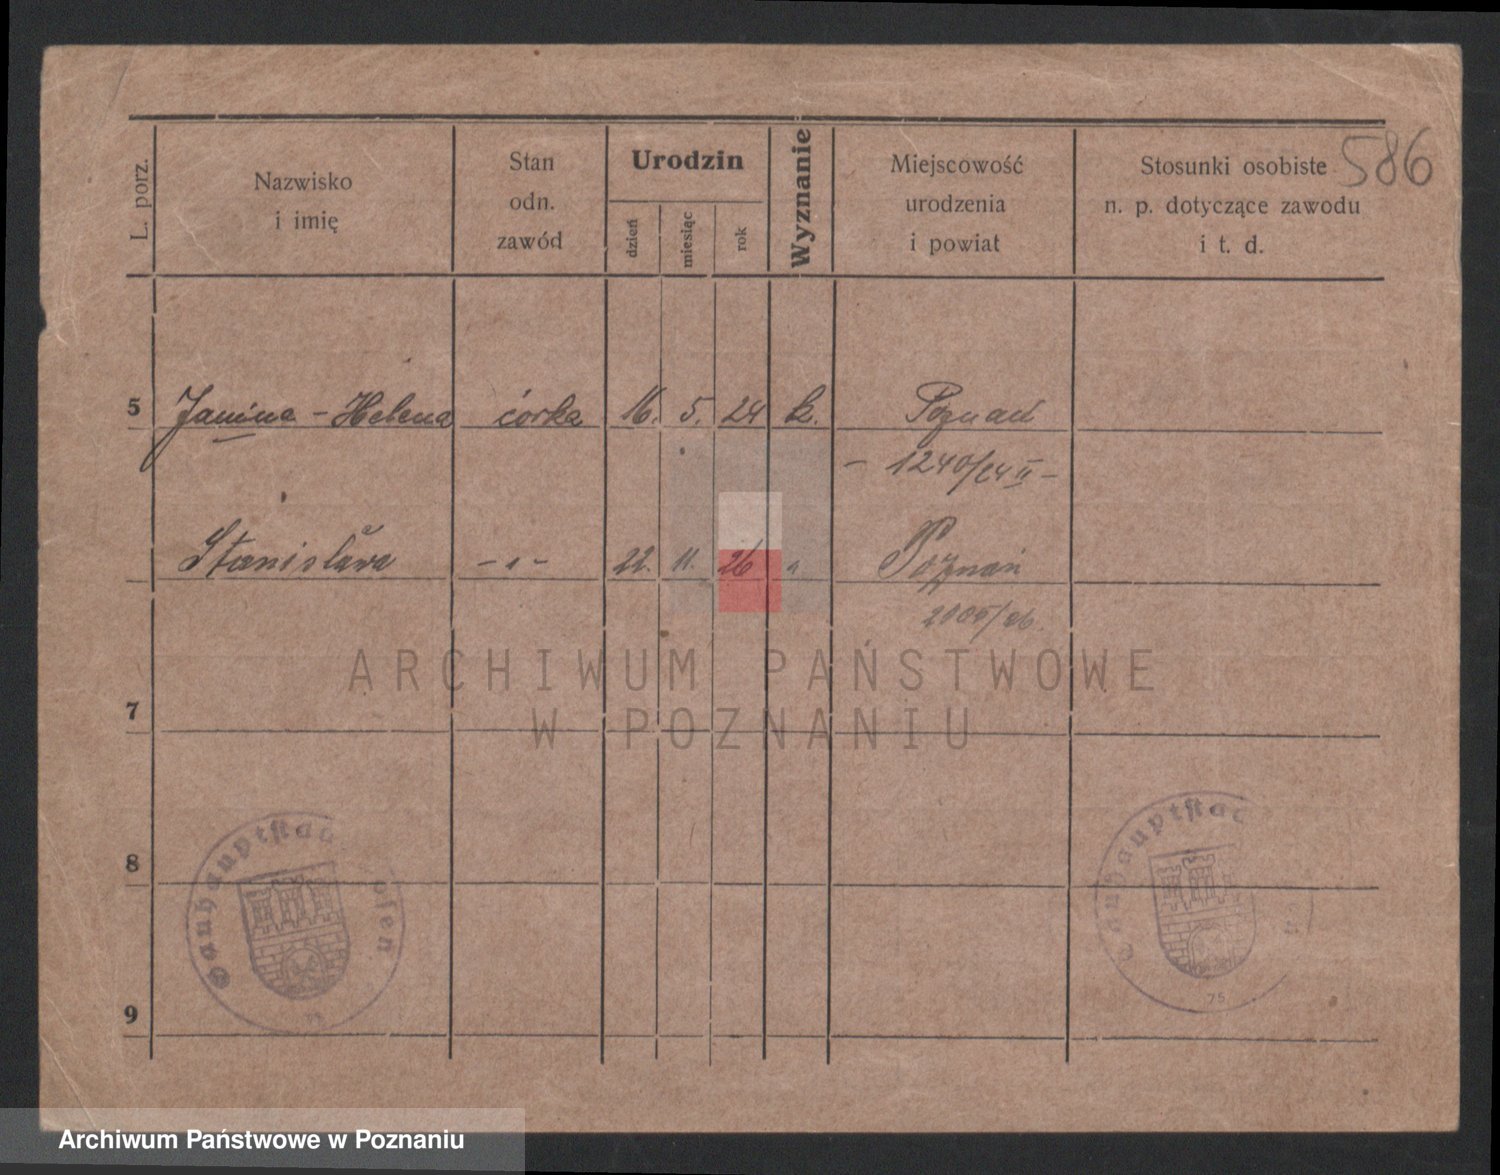 586
L. porz.
Nazwisko
i imię
Stan
odn.
zawód
Urodzin
dzień
miesiąc
rok
Wyznanie
Miejscowość
urodzenia
i powiat
Stosunki osobiste
n. p. dotyczące zawodu
i t. d.
5 Janina - Helena córka 16. 5. 24 k. Poznań
- 1240/24 II -
Stanisława - " - 22. 11. 26 " Poznań
ARCHIWUM PAŃSTWOWE
W POZNANIU
7
8
9
Gauhauptstad osen
75
Gauhauptstad
75
Archiwum Państwowe w Poznaniu